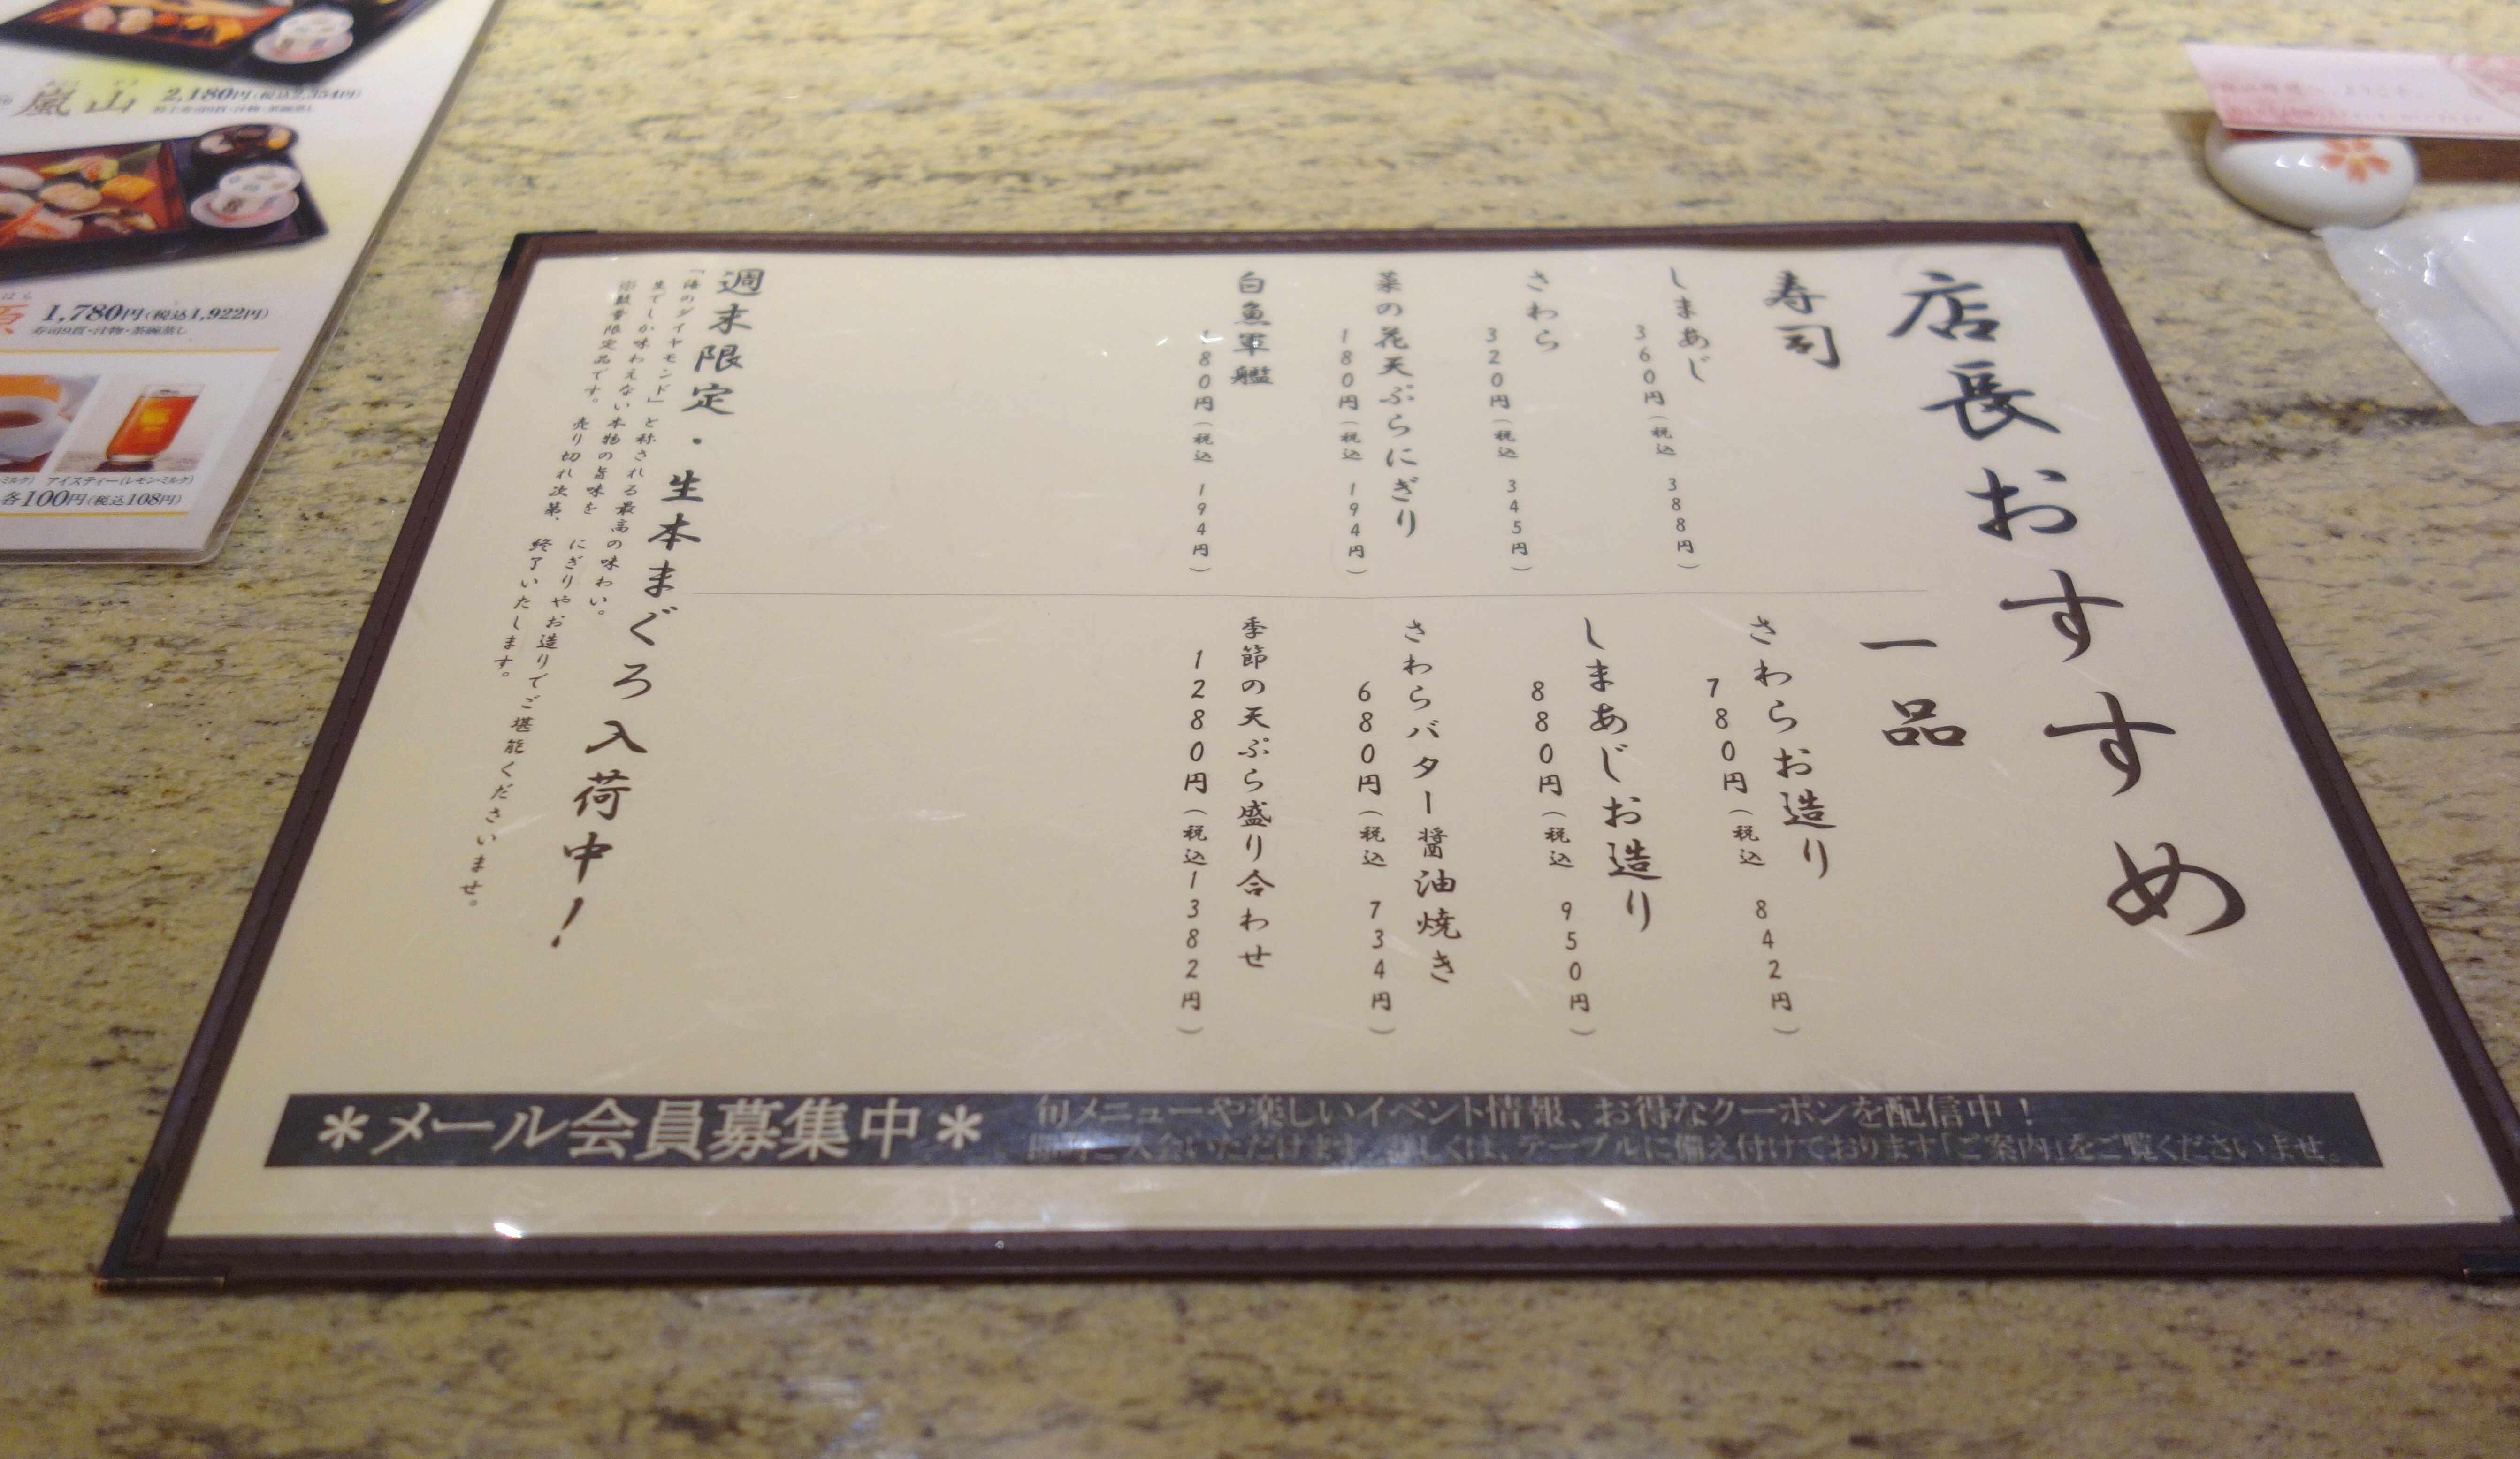 店長おすすめ
寿司
しまあじ
360円（税込 388円）
さわら
320円（税込 345円）
菜の花天ぷらにぎり
180円（税込 194円）
白魚軍艦
180円（税込 194円）
一品
さわらお造り
780円（税込 842円）
しまあじお造り
880円（税込 950円）
さわらバター醤油焼き
680円（税込 734円）
季節の天ぷら盛り合わせ
1280円（税込1382円）
週末限定・生本まぐろ入荷中！
「海のダイヤモンド」と称される最高の味わい。
生でしか味わえない本物の旨味を にぎりやお造りでご堪能くださいませ。
※数量限定品です。売り切れ次第、終了いたします。
＊メール会員募集中＊
旬メニューや楽しいイベント情報、お得なクーポンを配信中！
即時ご入会いただけます。詳しくは、テーブルに備え付けております「ご案内」をご覧くださいませ。
嵐山 2,180円(税込2,354円)
1,780円(税込1,922円)
寿司9貫・汁物・茶碗蒸し
アイスティー(レモン・ミルク)
各100円(税込108円)